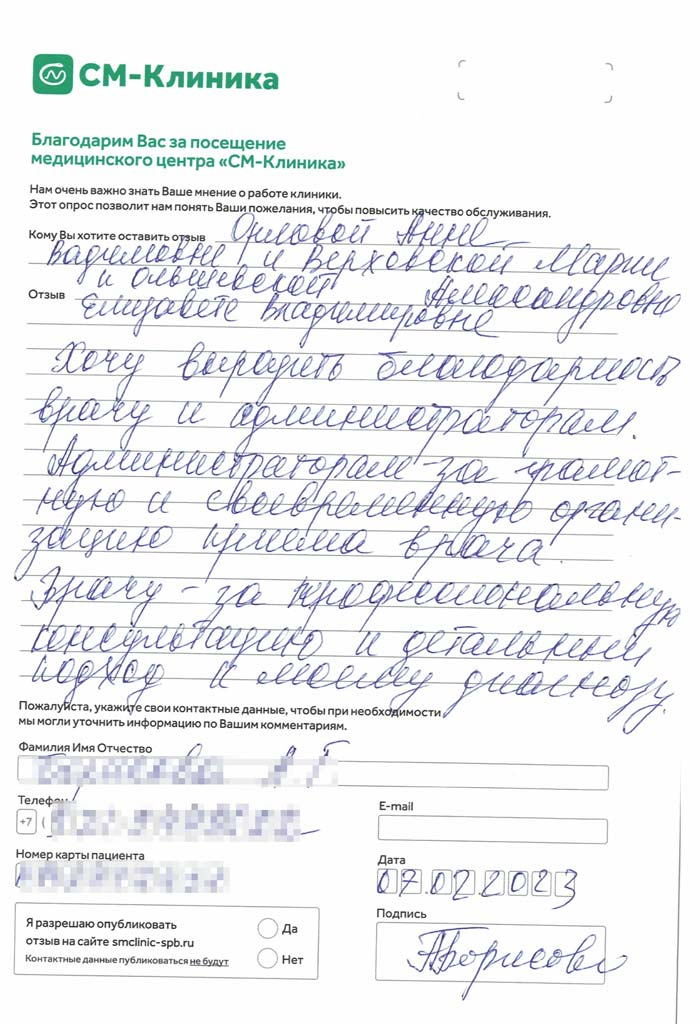 СМ-Клиника
Благодарим Вас за посещение
медицинского центра «СМ-Клиника»
Нам очень важно знать Ваше мнение о работе клиники.
Этот опрос позволит нам понять Ваши пожелания, чтобы повысить качество обслуживания.
Кому Вы хотите оставить отзыв Орловой Анне
Вадимовне и Верховской Марии
и Ольшевской Александровне
Отзыв Елизавете Владимировне
Хочу выразить благодарность
врачу и администраторам.
Администраторам - за грамот-
ную и своевременную органи-
зацию приема врача.
Врачу - за профессиональную
консультацию и детальный
подход к моему диагнозу.
Пожалуйста, укажите свои контактные данные, чтобы при необходимости
мы могли уточнить информацию по Вашим комментариям.
Фамилия Имя Отчество
Телефон
E-mail
+7 (
Номер карты пациента
Дата
07.02.2023
Я разрешаю опубликовать
отзыв на сайте smclinic-spb.ru
Контактные данные публиковаться не будут
Да
Нет
Подпись